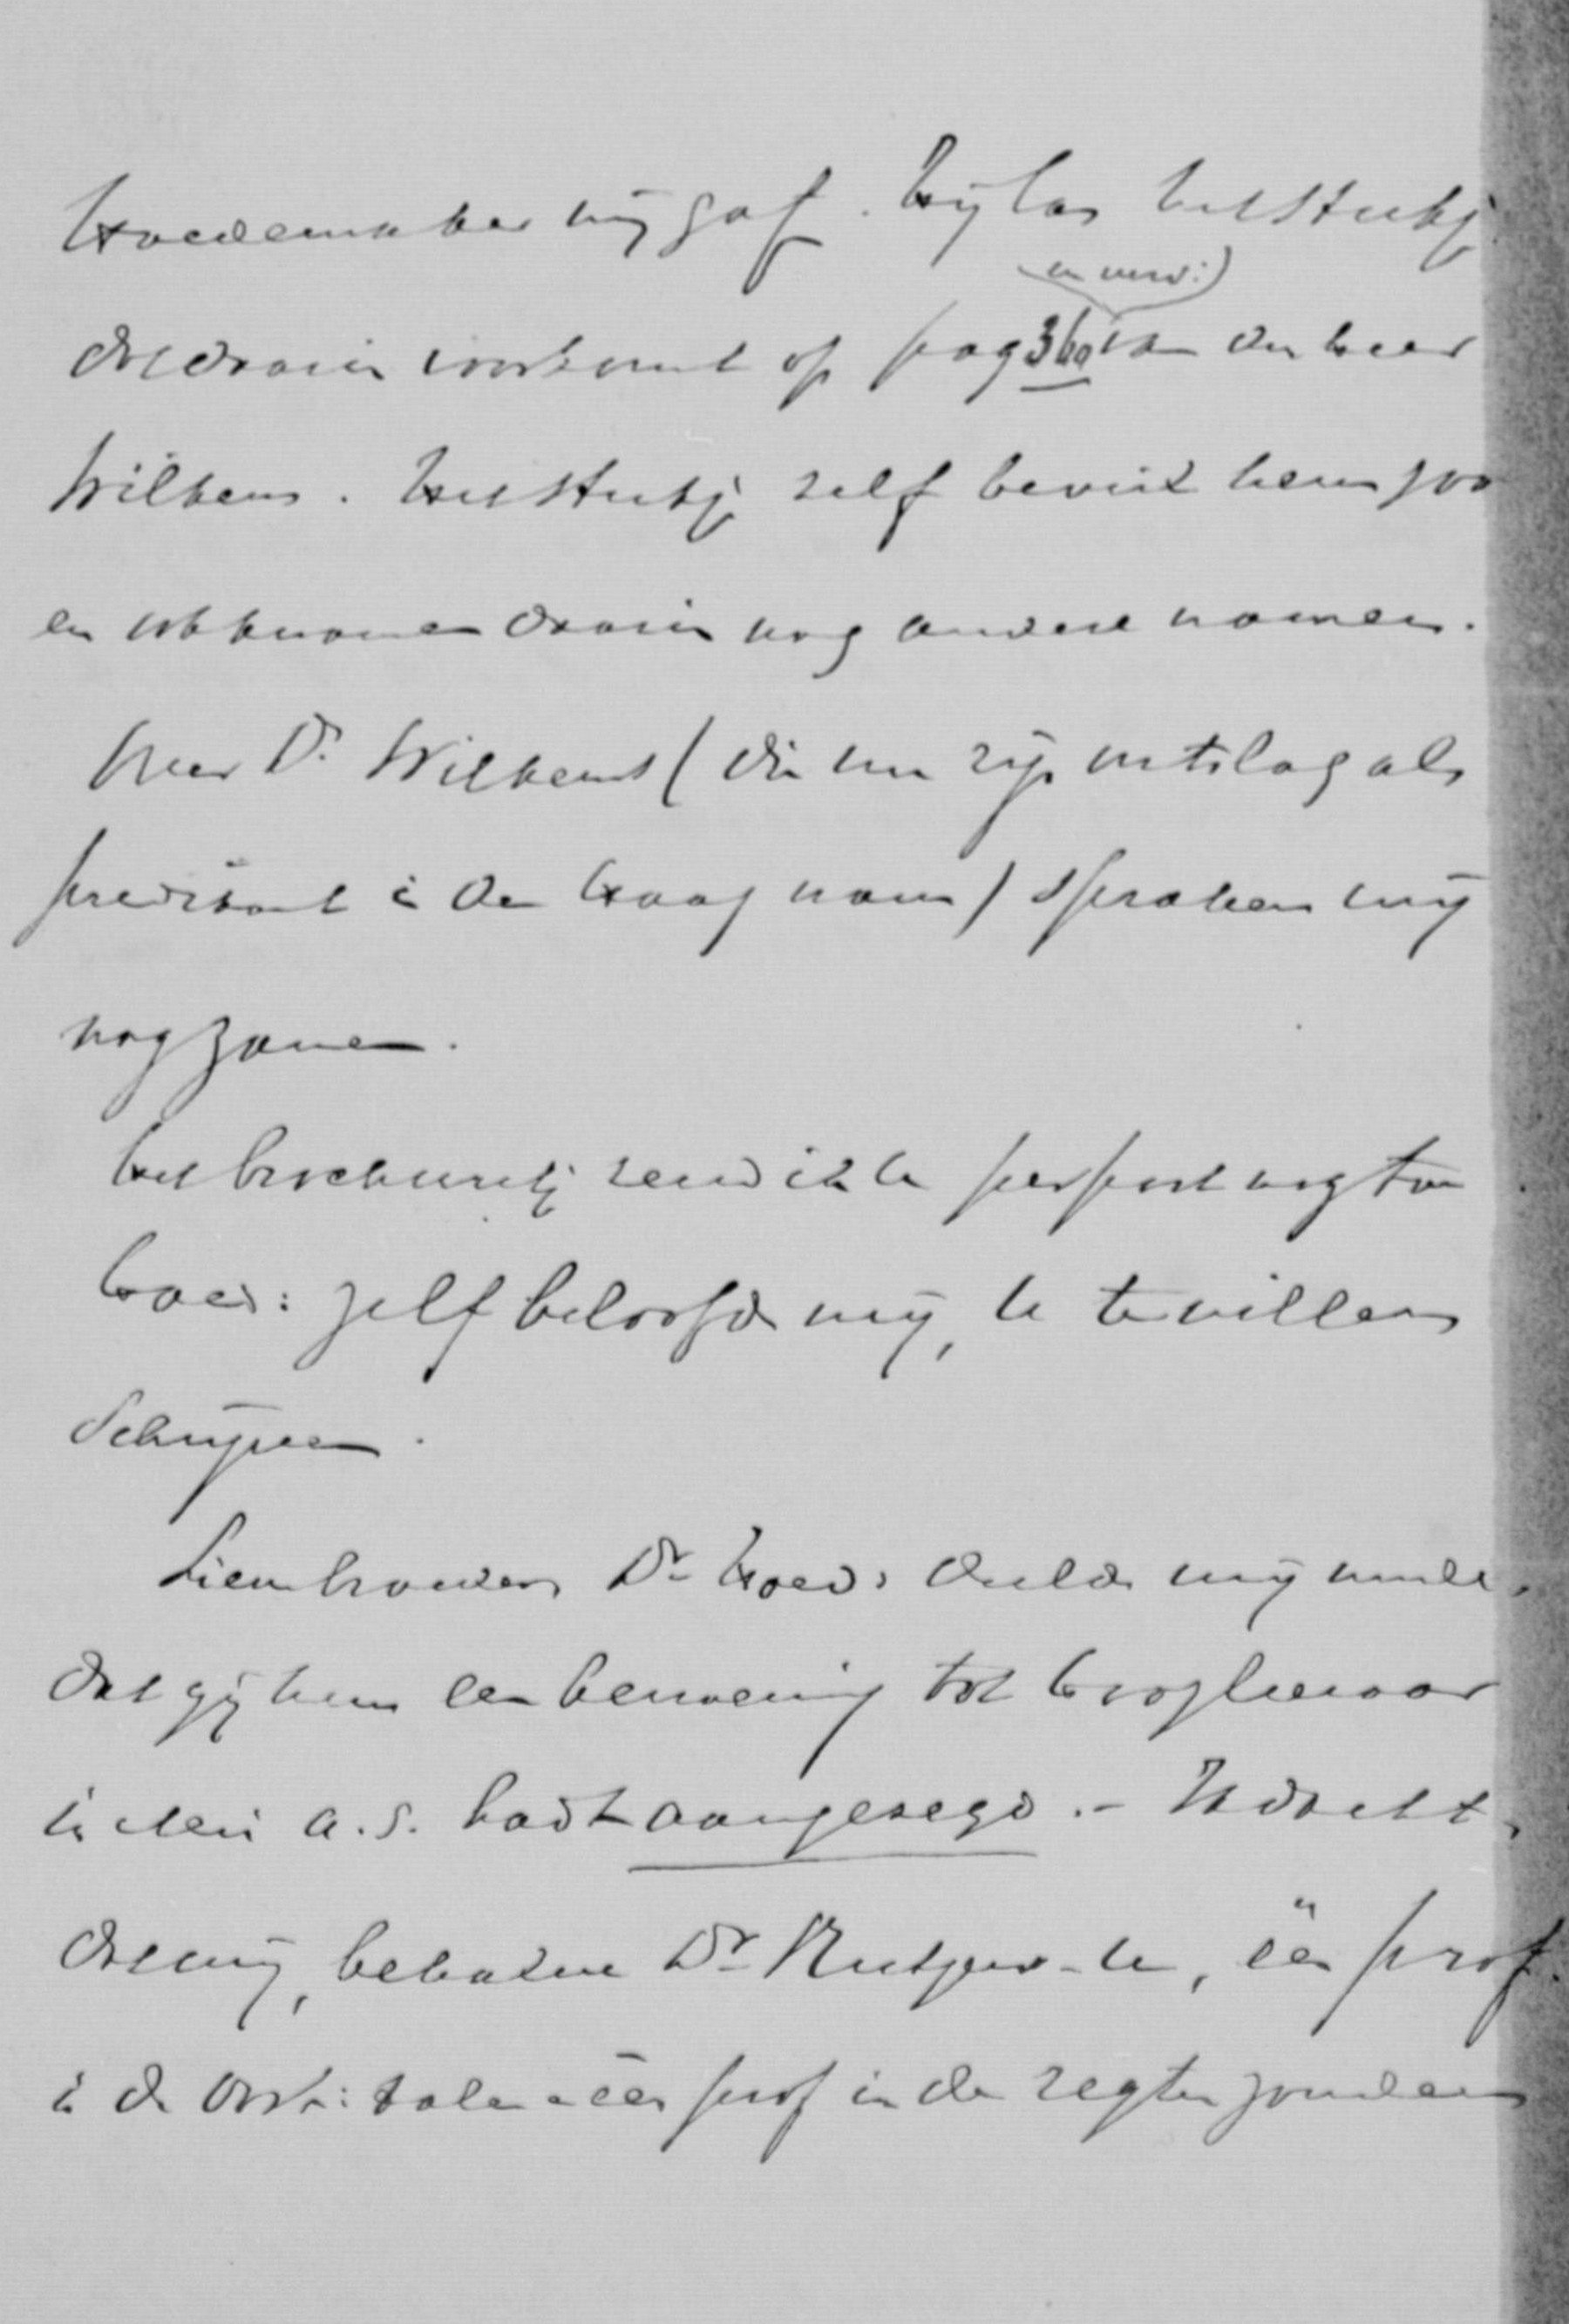 Hoedemaker mij gaf. Hij las het stukje
(en verv:)
dat daarin voorkomt op pag 360 van den heer
Wilkens. Het stukje zelf beviel hem
en ook komen daarin nog andere namen.
Over Dr. Wilkens (die nu zijn ontslag als
predikant in den Haag nam) spraken wij
nog zamen.
het brochuretje zend ik U per post nog toe
Hoed: zelf beloofde mij, U te willen
schrijven.
Lienbrouwer Dr Hoed: deelde mij mede,
dat gij hem een benoeming tot hoogleeraar
in Mei a.s. hadt aangezegd. – Ik dacht,
dat wij, behalve Dr Rutgers - U, één prof.
in de Oost: talen één prof in de regten zouden